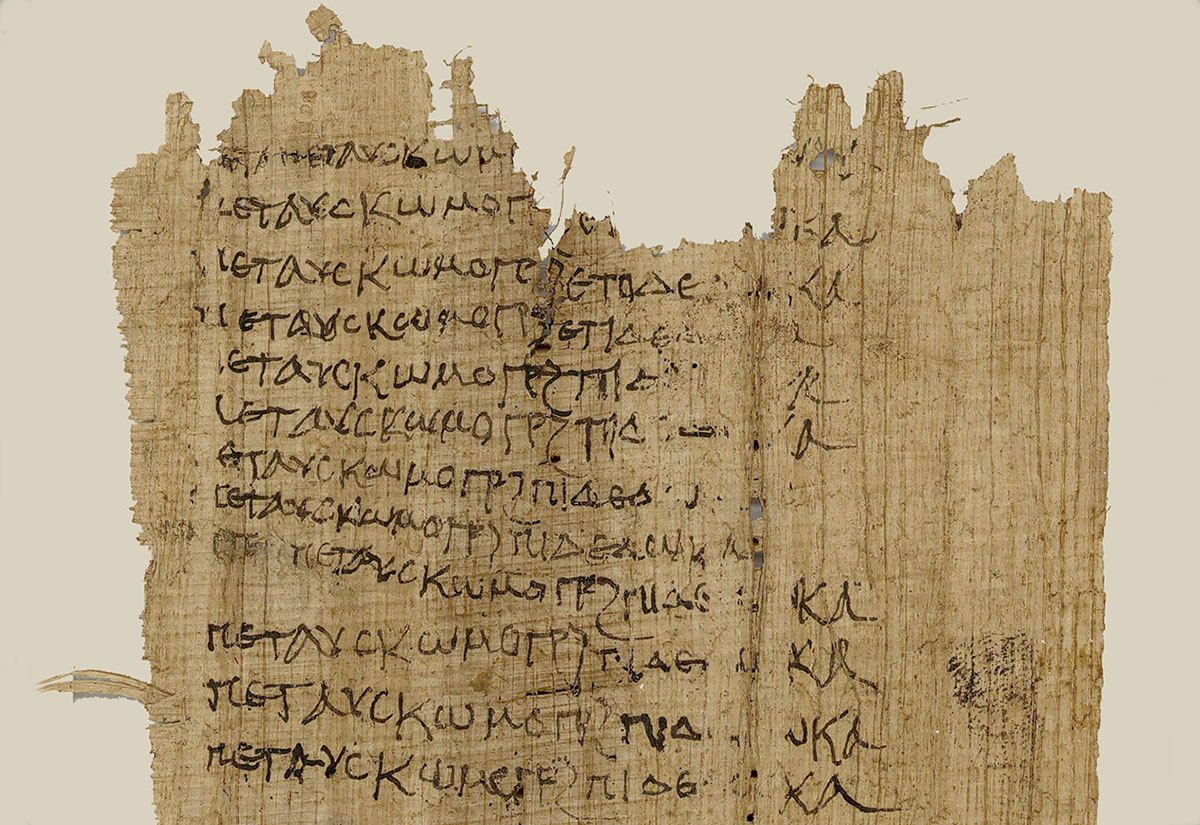 πεταυσκωμ
εταυσκωμογρ κα
εταυσκωμογρ επιδε κα
εταυσκωμογρ επιδε α
εταυσκωμογρ πιδ κα
εταυσκωμογρ πιδ α
εταυσκωμογρ πιδεδ
εταυσκωμογρ πιδεδωκα
πεταυσκωμογρ πιδε κα
πεταυσκωμογρ πιδε κα
πεταυσκωμογρ πιδ κα
πεταυσκωμογρ πιδε κα